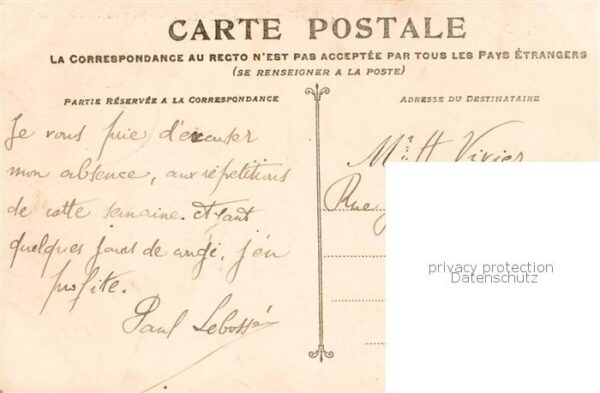 CARTE POSTALE
LA CORRESPONDANCE AU RECTO N'EST PAS ACCEPTÉE PAR TOUS LES PAYS ÉTRANGERS
(SE RENSEIGNER A LA POSTE)
PARTIE RÉSERVÉE A LA CORRESPONDANCE
Je vous prie d'excuser
mon absence, aux répétitions
de cette semaine. Ayant
quelques jours de congé, j'en
profite.
Paul Lebossé
ADRESSE DU DESTINATAIRE
Mr H Vivier
Rue
privacy protection
Datenschutz